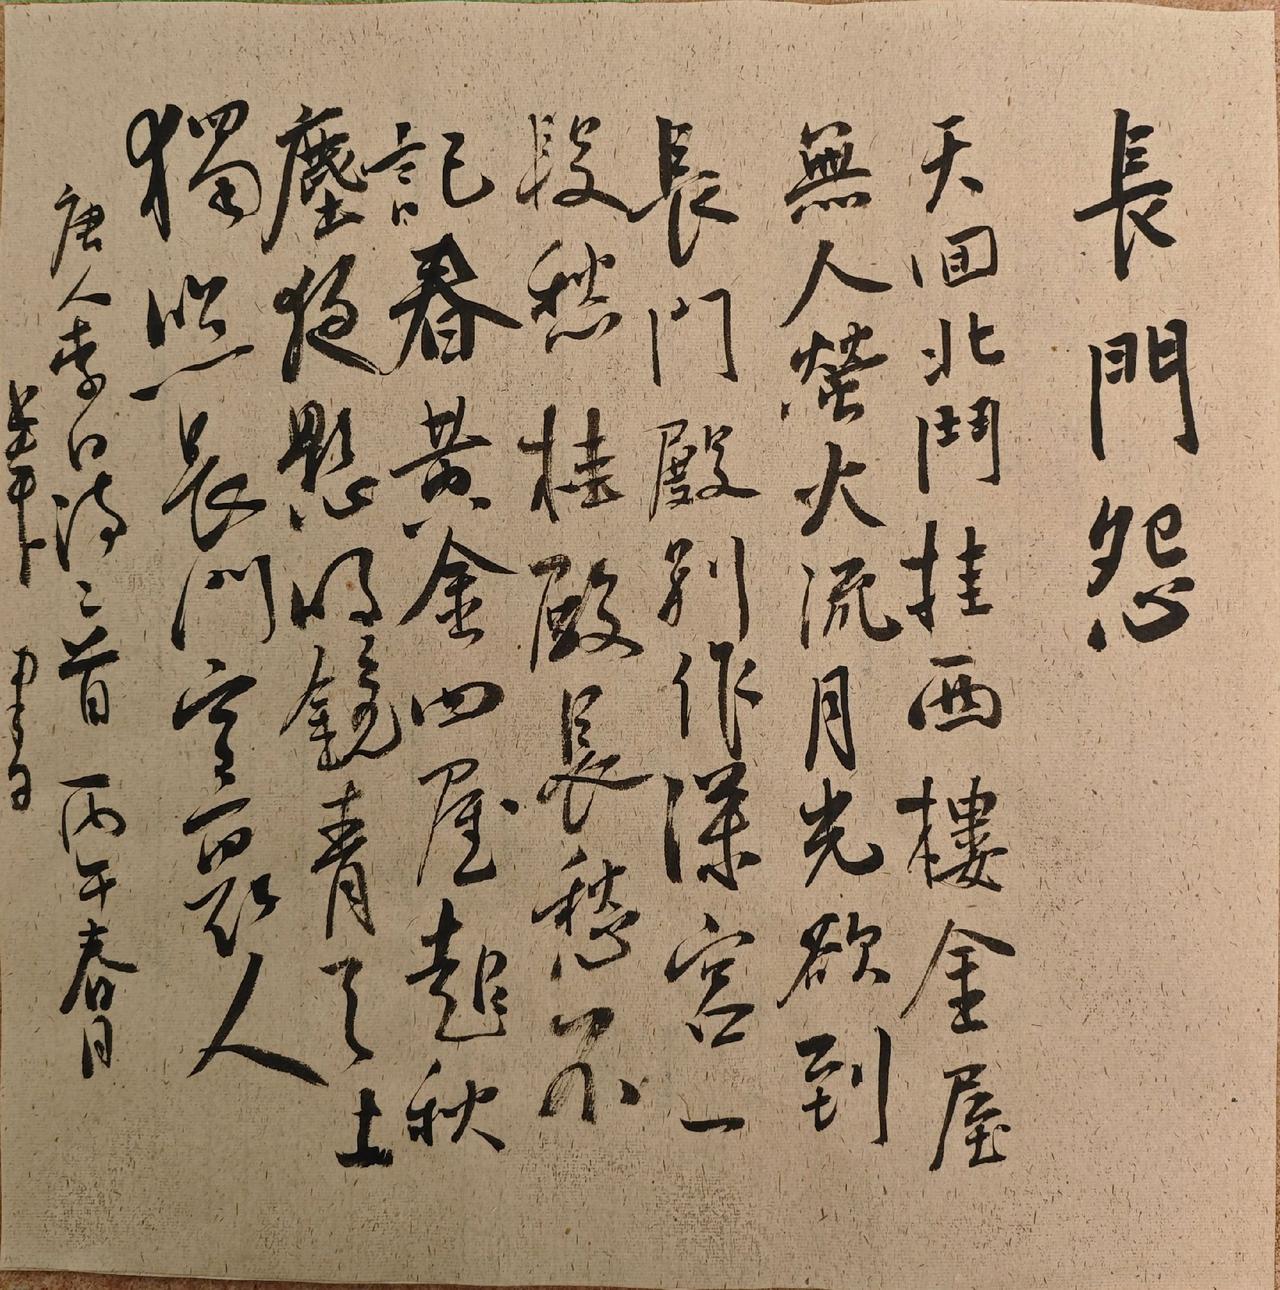 長門怨
天回北鬥挂西樓金屋
無人螢火流月光欲到
長門殿別作深宮一
段愁桂殿長愁不
記春黃金四屋起秋
塵夜懸明鏡青天上
獨照長門宮裏人
唐人李白詩二首 丙午春月